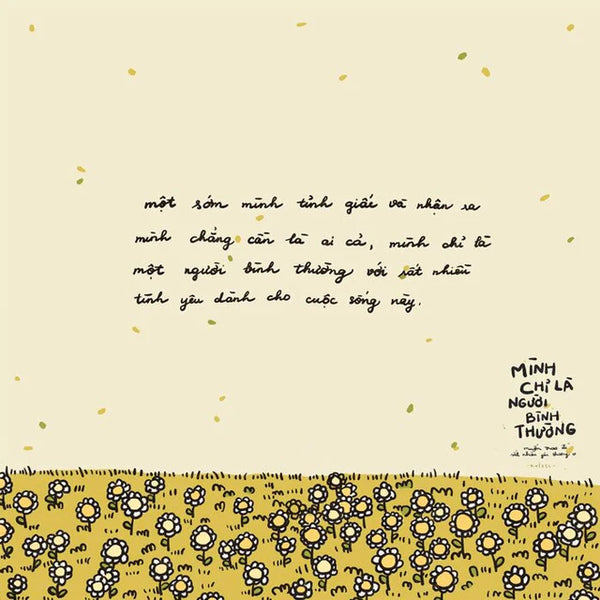 một sớm mình tỉnh giấc và nhận ra
mình chẳng cần là ai cả, mình chỉ là
một người bình thường với rất nhiều
tình yêu dành cho cuộc sống này.
MÌNH
CHỈ LÀ
NGƯỜI
BÌNH
THƯỜNG